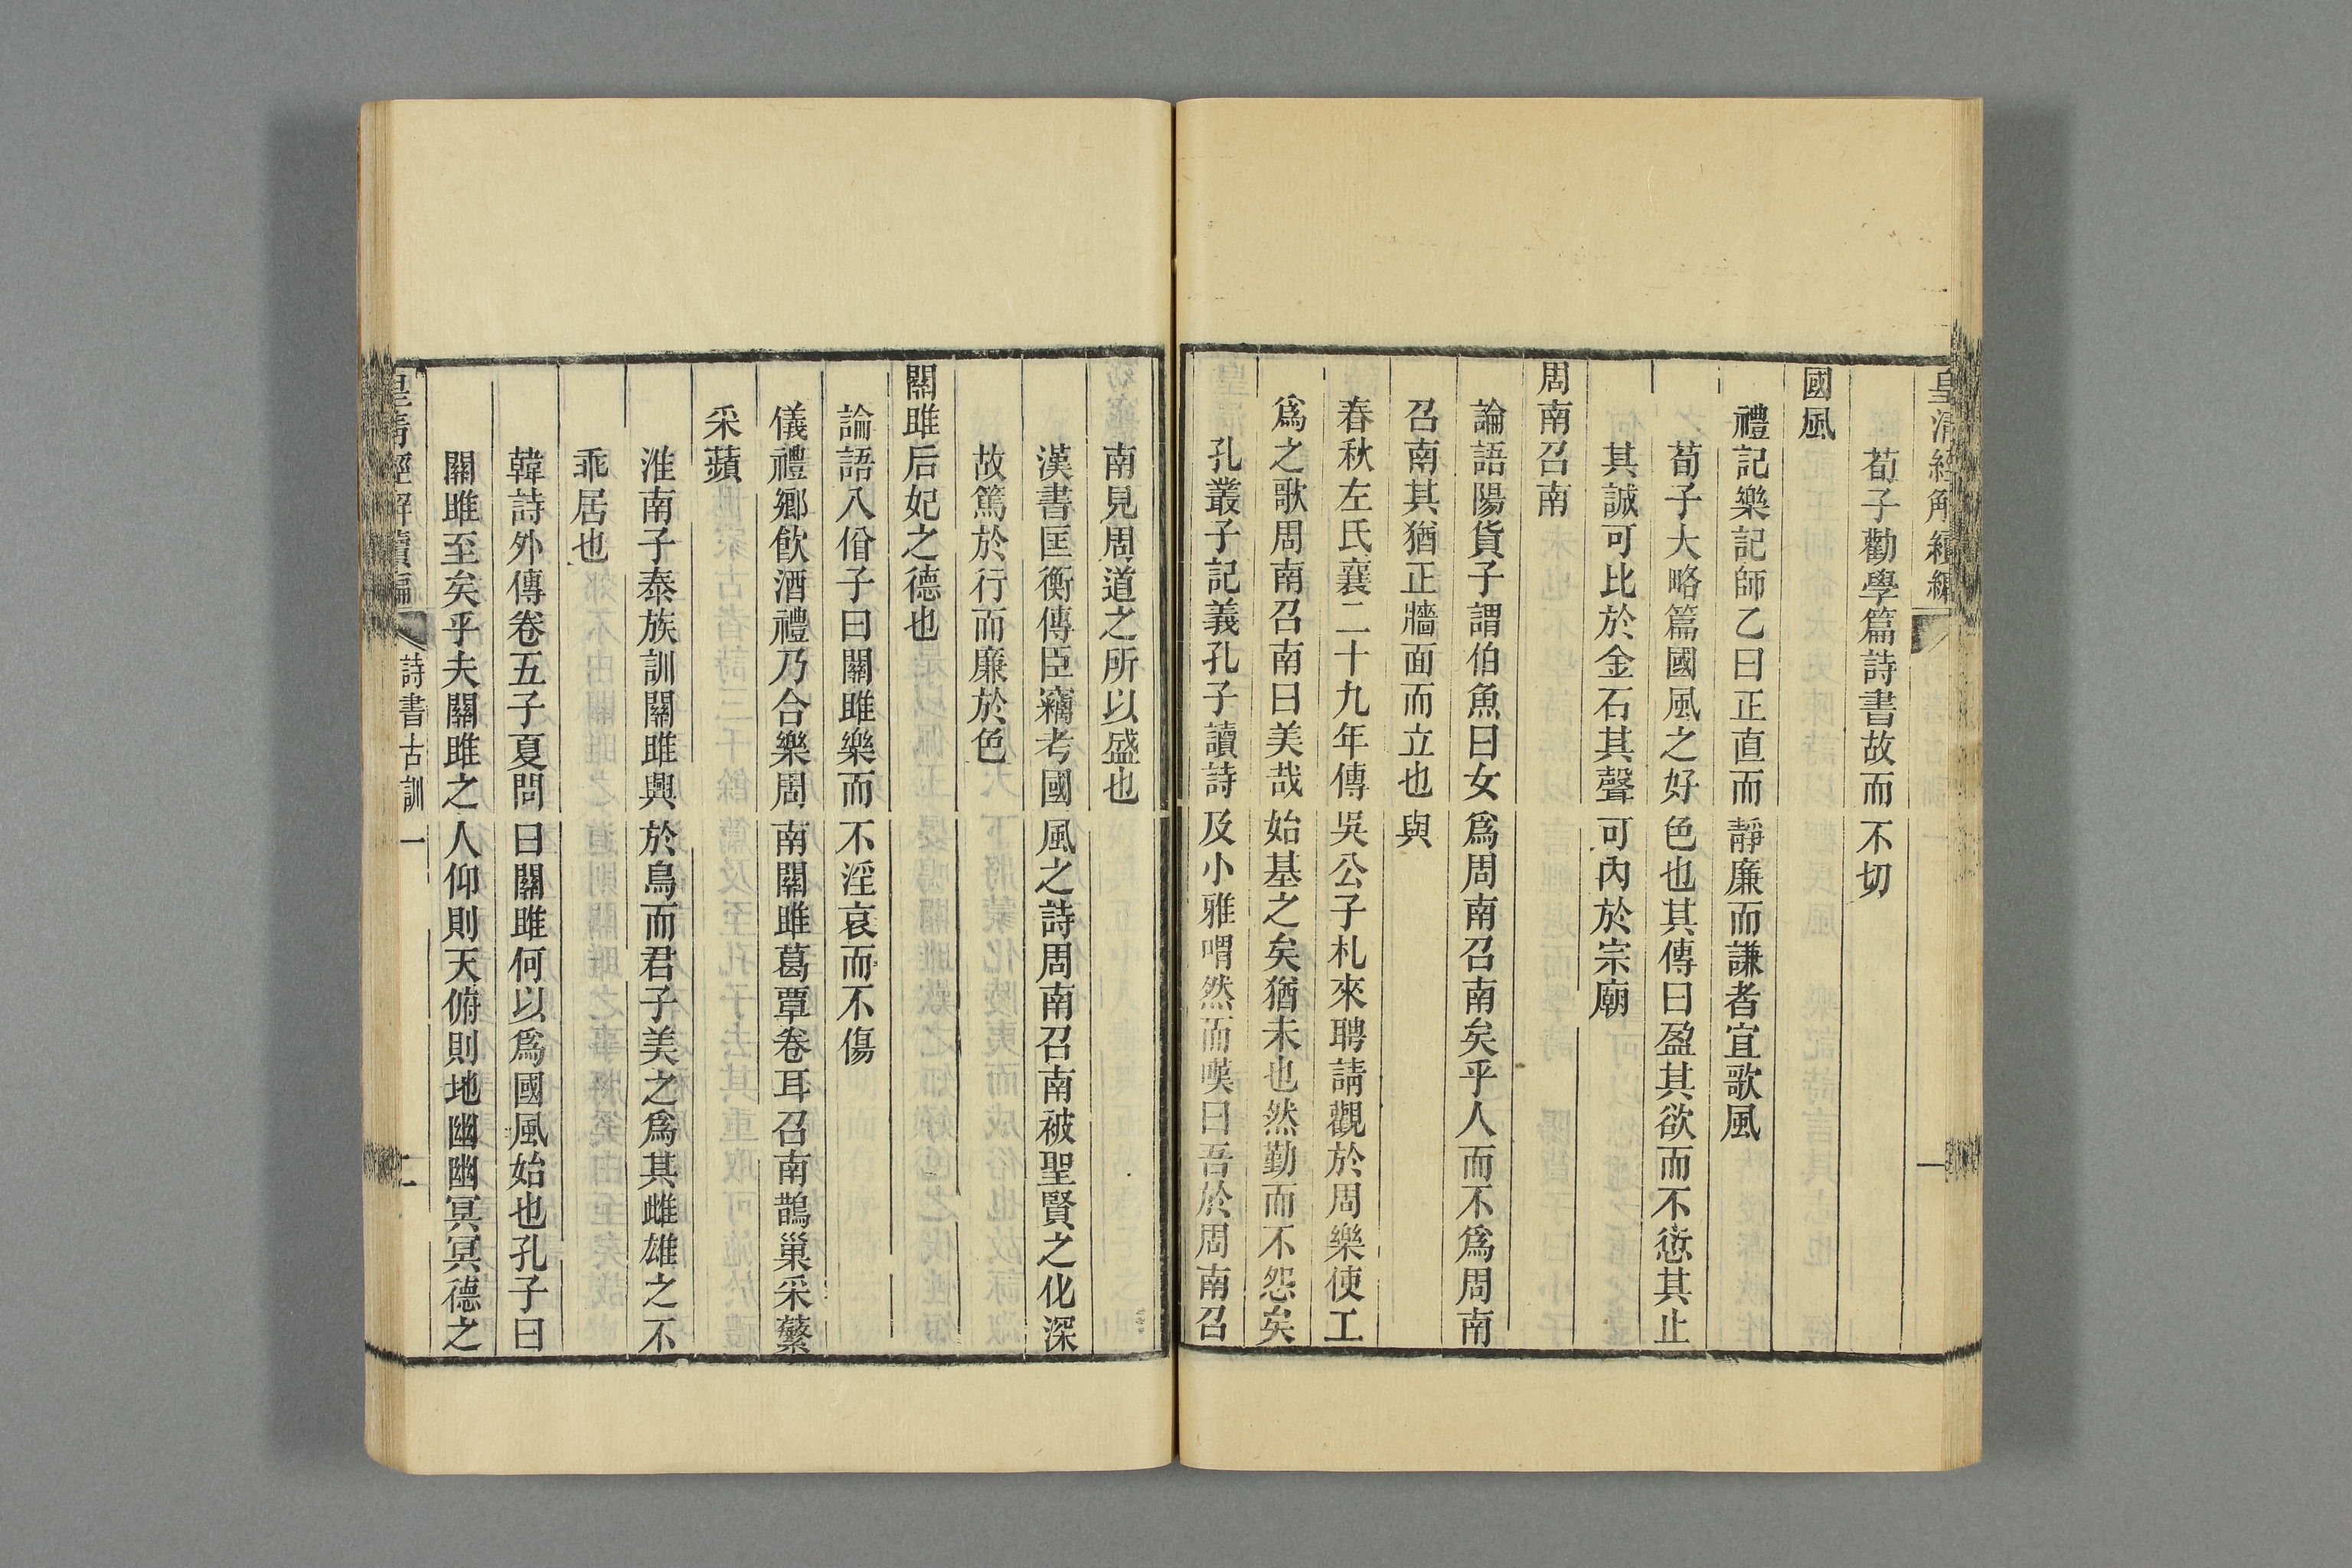 皇清經解續編
一
荀子勸學篇詩書故而不切
國風
禮記樂記師乙曰正直而靜廉而謙者宜歌風
荀子大略篇國風之好色也其傳曰盈其欲而不愆其止
其誠可比於金石其聲可內於宗廟
周南召南
論語陽貨子謂伯魚曰女爲周南召南矣乎人而不爲周南
召南其猶正牆面而立也與
春秋左氏襄二十九年傳吳公子札來聘請觀於周樂使工
爲之歌周南召南曰美哉始基之矣猶未也然勤而不怨矣
孔叢子記義孔子讀詩及小雅喟然而嘆曰吾於周南召
南見周道之所以盛也
漢書匡衡傳臣竊考國風之詩周南召南被聖賢之化深
故篤於行而廉於色
關雎后妃之德也
論語八佾子曰關雎樂而不淫哀而不傷
儀禮鄉飲酒禮乃合樂周南關雎葛覃卷耳召南鵲巢采蘩
采蘋
淮南子泰族訓關雎興於鳥而君子美之爲其雌雄之不
乖居也
韓詩外傳卷五子夏問曰關雎何以爲國風始也孔子曰
關雎至矣乎夫關雎之人仰則天俯則地幽幽冥冥德之
皇清經解續編
詩書古訓一
二